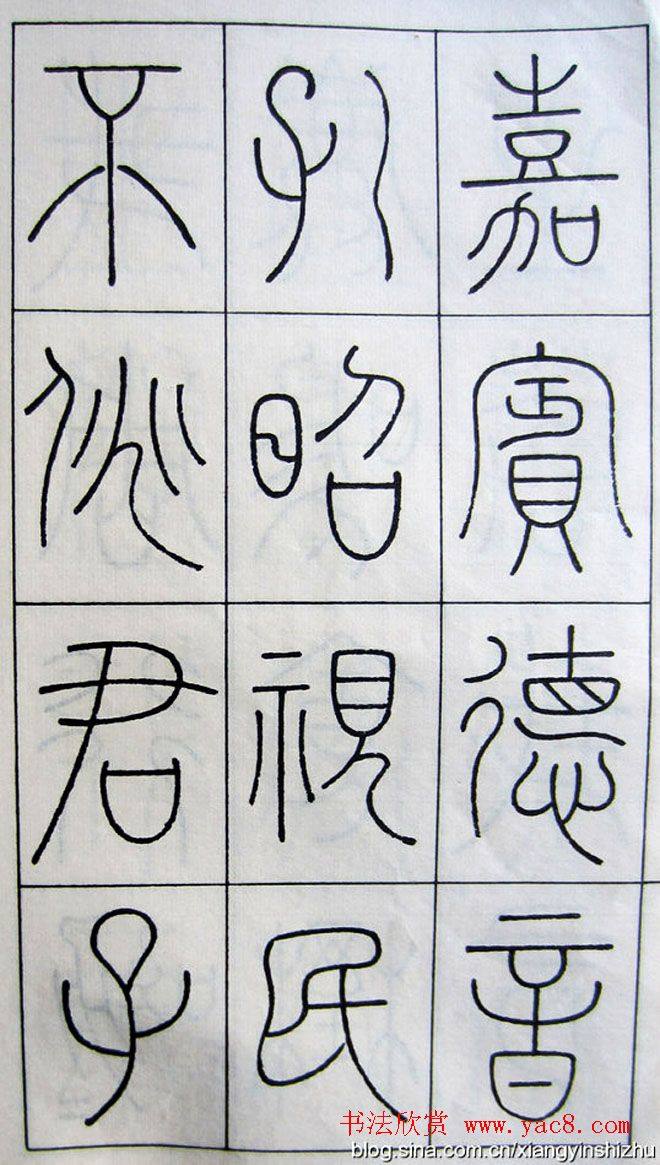 嘉賓德音
孔昭視民
不佻君子
书法欣赏 www.yac8.com
blog.sina.com.cn/xiangyinshizhu